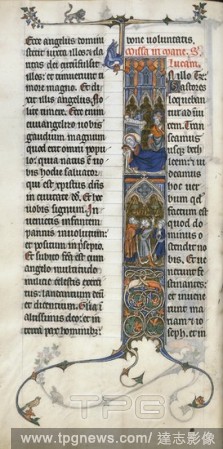 Ecce angelus domini
stetit iuxta illos: et
dei circumfulsit
illos: et timuerunt ti
more magno. Et di
xit illis angelus. No
lite timere. Ecce enim
ewangelizo uobis
gaudium magnum
quod erit omni popu
lo: quia natus est uo
bis hodie saluator:
qui est xpistus domi
in ciuitate dauid. Et hoc
uobis signum. In
uenietis infantem
pannis inuolutum:
et positum in presepio.
Et subito facta est cum
angelo multitudo
militie celestis exerci
tus: laudantium deum
et dicentium. Gloria i
altissimis deo: et in
terra pax hominibus
bone voluntatis.
Missa in mane. S
Lucam.
In illo
Pastores
loquebantur
ad
cem. Trans
eamus
usque beth
leem: et ui
deamus
hoc uer
bum quod
factum
est quod
dominus
o
dis. Et ue
nerunt fe
stinantes:
et inuene
runt ma
riam et io
seph. et in
TPG
www.tpgnews.com/達志影像